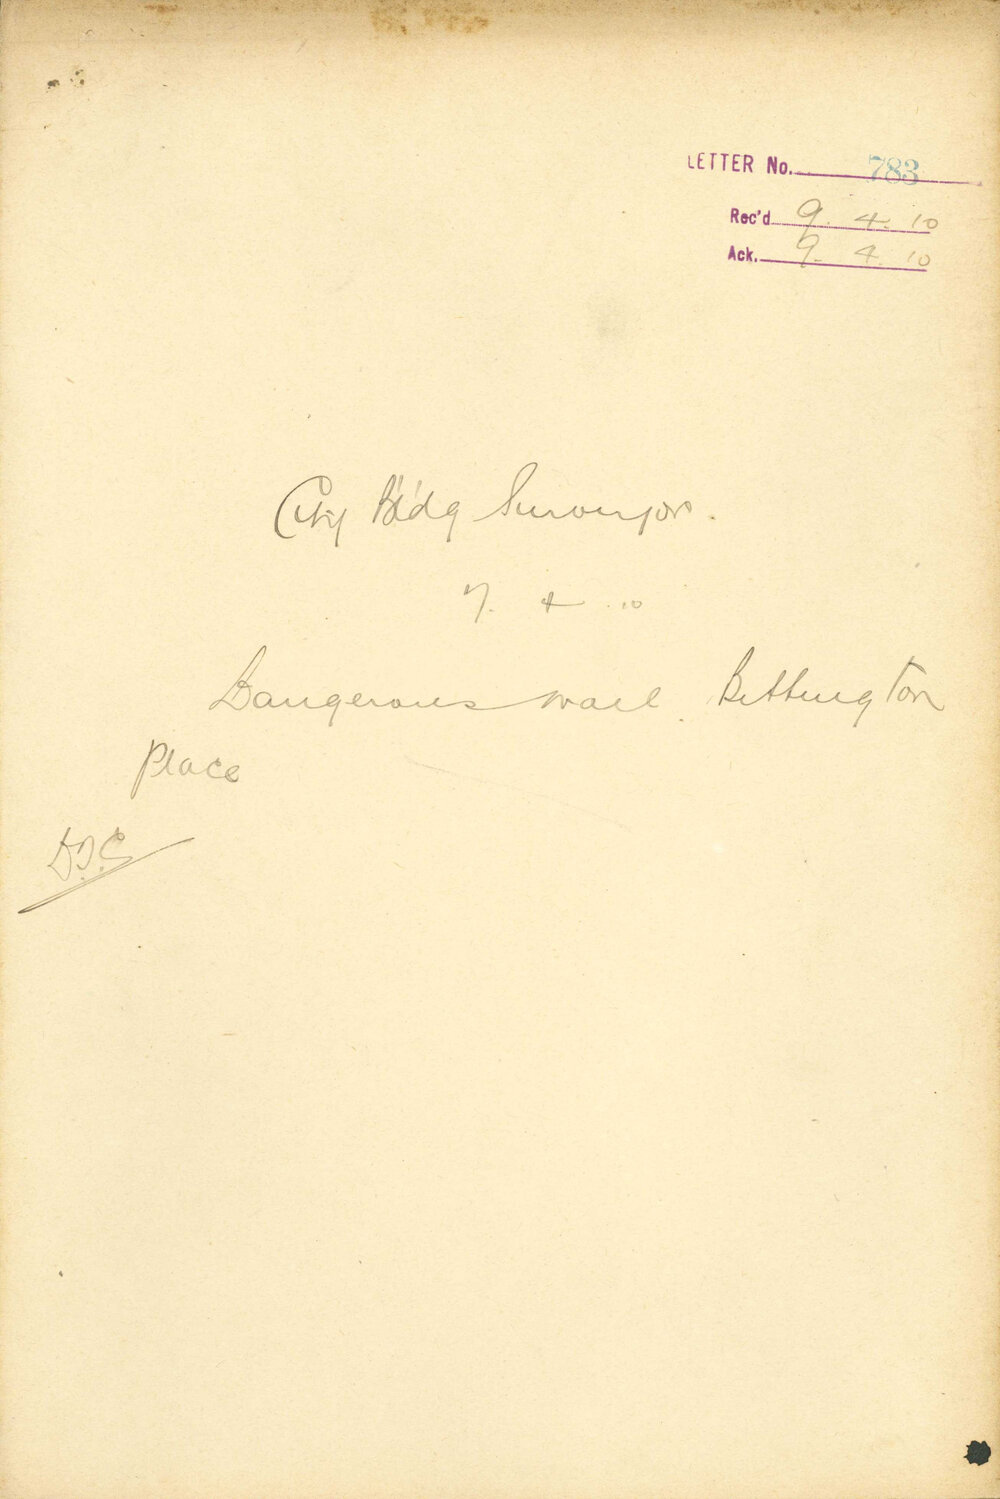 LETTER No. 783
Rec'd 9. 4. 10
Ack. 9. 4. 10
City Bldg Surveyor.
7. 4. 10
Dangerous wall. Bettington
Place
D.T.C